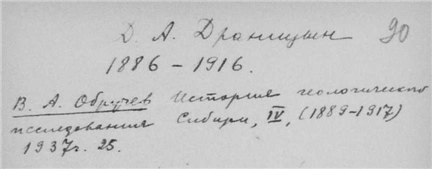 Д. А. Драницын 90
1886 – 1916.
В. А. Обручев История геологического
исследования Сибири, IV, (1889-1917)
1937г. 25.